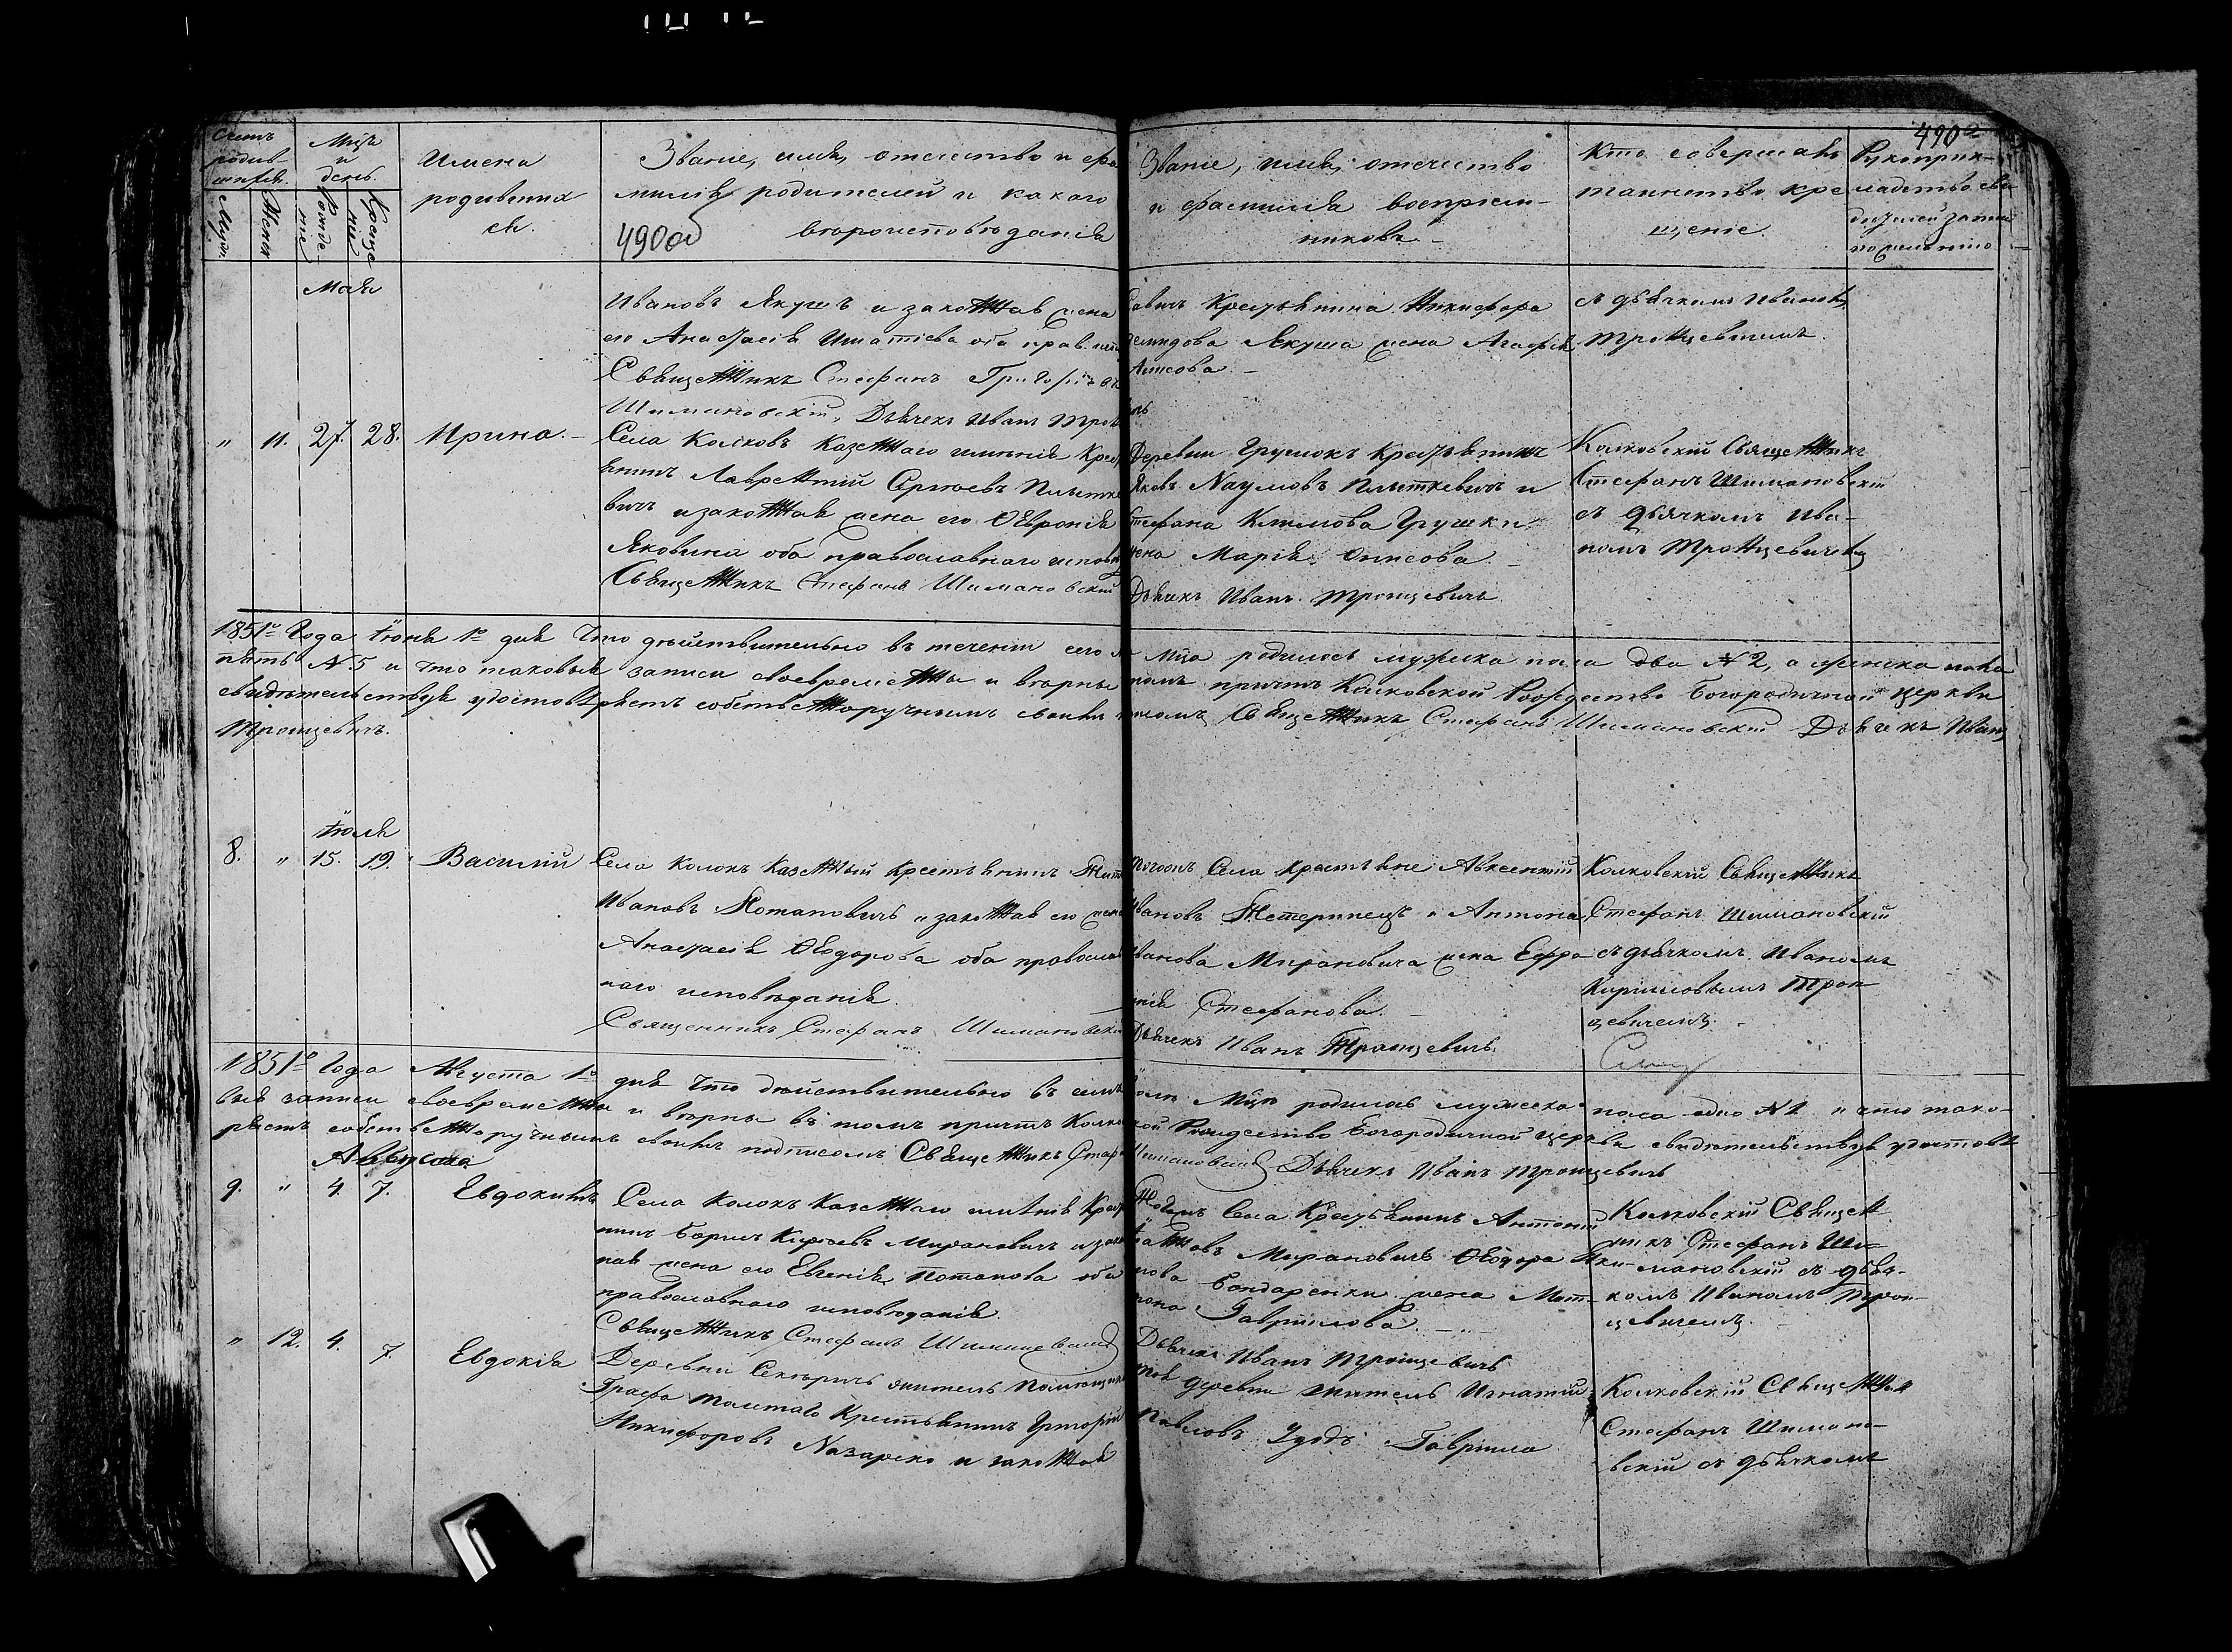 Счетъ родив-
шихся.
Мужес.
Женск.
Мцъ
и
день.
Рожде-
ніе
Креще-
ніе
Имена
родивших
ся.
Званіе, имя, отечество и фа
милія родителей и какого
вѣроисповѣданія
490об
Званіе, имя, отечество
и фамилія воспріем-
никовъ
Кто совершалъ
таинство кре
щеніе.
Рукоприк-
ладство сви
дѣтелей записи
по желанію
490
Мая
Ивановъ Якушъ и законная жена
его Анастасія Игнатіева оба прав. испо
Священникъ Стефанъ Григоріевъ
Шимановскій, Дьячекъ Иванъ Трои
Крестьянина Никифора
Демидова Якуша жена Агафія
съ дьячкомъ Иваномъ
Троицевичемъ.
" 11. 27. 28. Ирина.
Села Колковъ Казеннаго имѣнія Крест
янинъ Лаврентій Сергіевъ Плытке
вичъ и законная жена его Ѳевронія
Яковлева оба православнаго исповѣ
Священникъ Стефанъ Шимановскій
Деревни Грушокъ Крестьянинъ
Яковъ Наумовъ Плыткевичъ и
Стефана Климова Грушки
жена Марія Анисова.
Дьячекъ Иванъ Троицевичъ
Колковскій Священникъ
Стефанъ Шимановскій
съ дьячкомъ Ива-
номъ Троицевичемъ
1851го Года Іюня 1го дня Что дѣйствительно въ теченіи сего Мца родилось мужеска пола два № 2, а женска пола
пять № 5 и что таковыя записи своевременны и вѣрны въ томъ причтъ Колковской Рождество Богородичной церкви
свидѣтельствуя удостовѣряетъ собственноручнымъ своимъ подписомъ Священникъ Стефанъ Шимановскій Дьячекъ Иванъ
Троицевичъ.
Іюля
8. " 15. 19. Василій
Села Колокъ Казенный Крестьянинъ
Ивановъ Потаповичъ и законная его жена
Анастасія Ѳеодорова оба православ
наго исповѣданія
Священникъ Стефанъ Шимановскій
Тогожъ Села Крестьяне Авксентій
Ивановъ и Антона
Иванова Мирановича жена Евфро
синія Стефанова.
Дьячекъ Иванъ Троицевичъ.
Колковскій Священникъ
Стефанъ Шимановскій
съ дьячкомъ Иваномъ
Кирилловымъ Трои
цевичемъ.
1851го Года Августа 1го дня Что дѣйствительно въ семъ Іюлѣ Мцѣ родилось мужеска пола одно № 1 и что тако-
выя записи своевременны и вѣрны въ томъ причтъ Колковской Рождество Богородичной церкви свидѣтельствуя удостовѣ
ряетъ собственноручнымъ своимъ подписомъ Священникъ Стефанъ Шимановскій Дьячекъ Иванъ Троицевичъ
Августа
9. " 4. 7. Евдокимъ
Села Колокъ Казеннаго имѣнія Крестья
нинъ Борисъ Мирановичъ и закон
ная жена его Евгенія Потапова оба
православнаго исповѣданія.
Священникъ Стефанъ Шимановскій
Тогожъ Села Крестьянинъ Антоній
Ивановъ Мирановичъ Ѳеодора Яки-
мова Бондаренки жена Мат-
рона Гавріилова.
Дьячекъ Иванъ Троицевичъ
Колковскій Священ
никъ Стефанъ Ши-
мановскій съ дьяч-
комъ Иваномъ Трои-
цевичемъ.
" 12. 4. 7. Евдокія
Деревни Секиричъ житель Помѣщика
Графа Толстаго Крестьянинъ Григорій
Никифоровъ Назарско и законная
Той деревни житель Игнатій
Павловъ Удодъ Гавріила
Колковскій Священникъ
Стефанъ Шимано-
вскій съ дьячкомъ